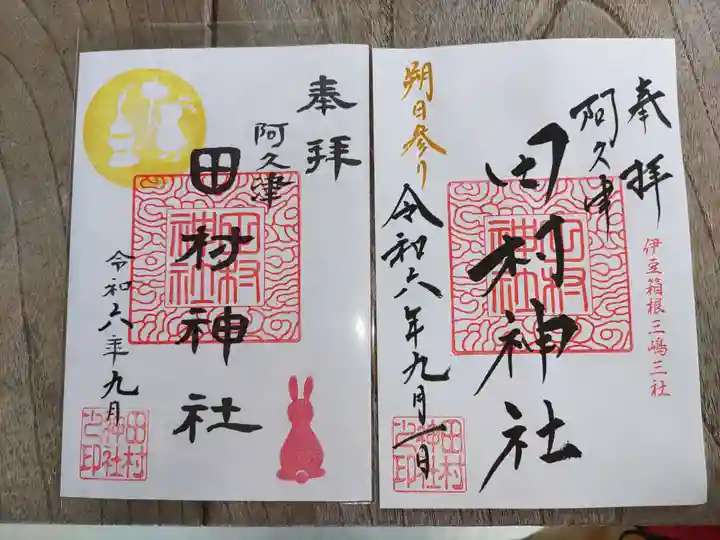 奉拝
阿久津
田村神社
令和六年九月
田村
神社
田村
神社
之印
奉拝
阿久津
田村神社
伊豆箱根三嶋三社
朔日参り
令和六年九月一日
田村
神社
田村
神社
之印